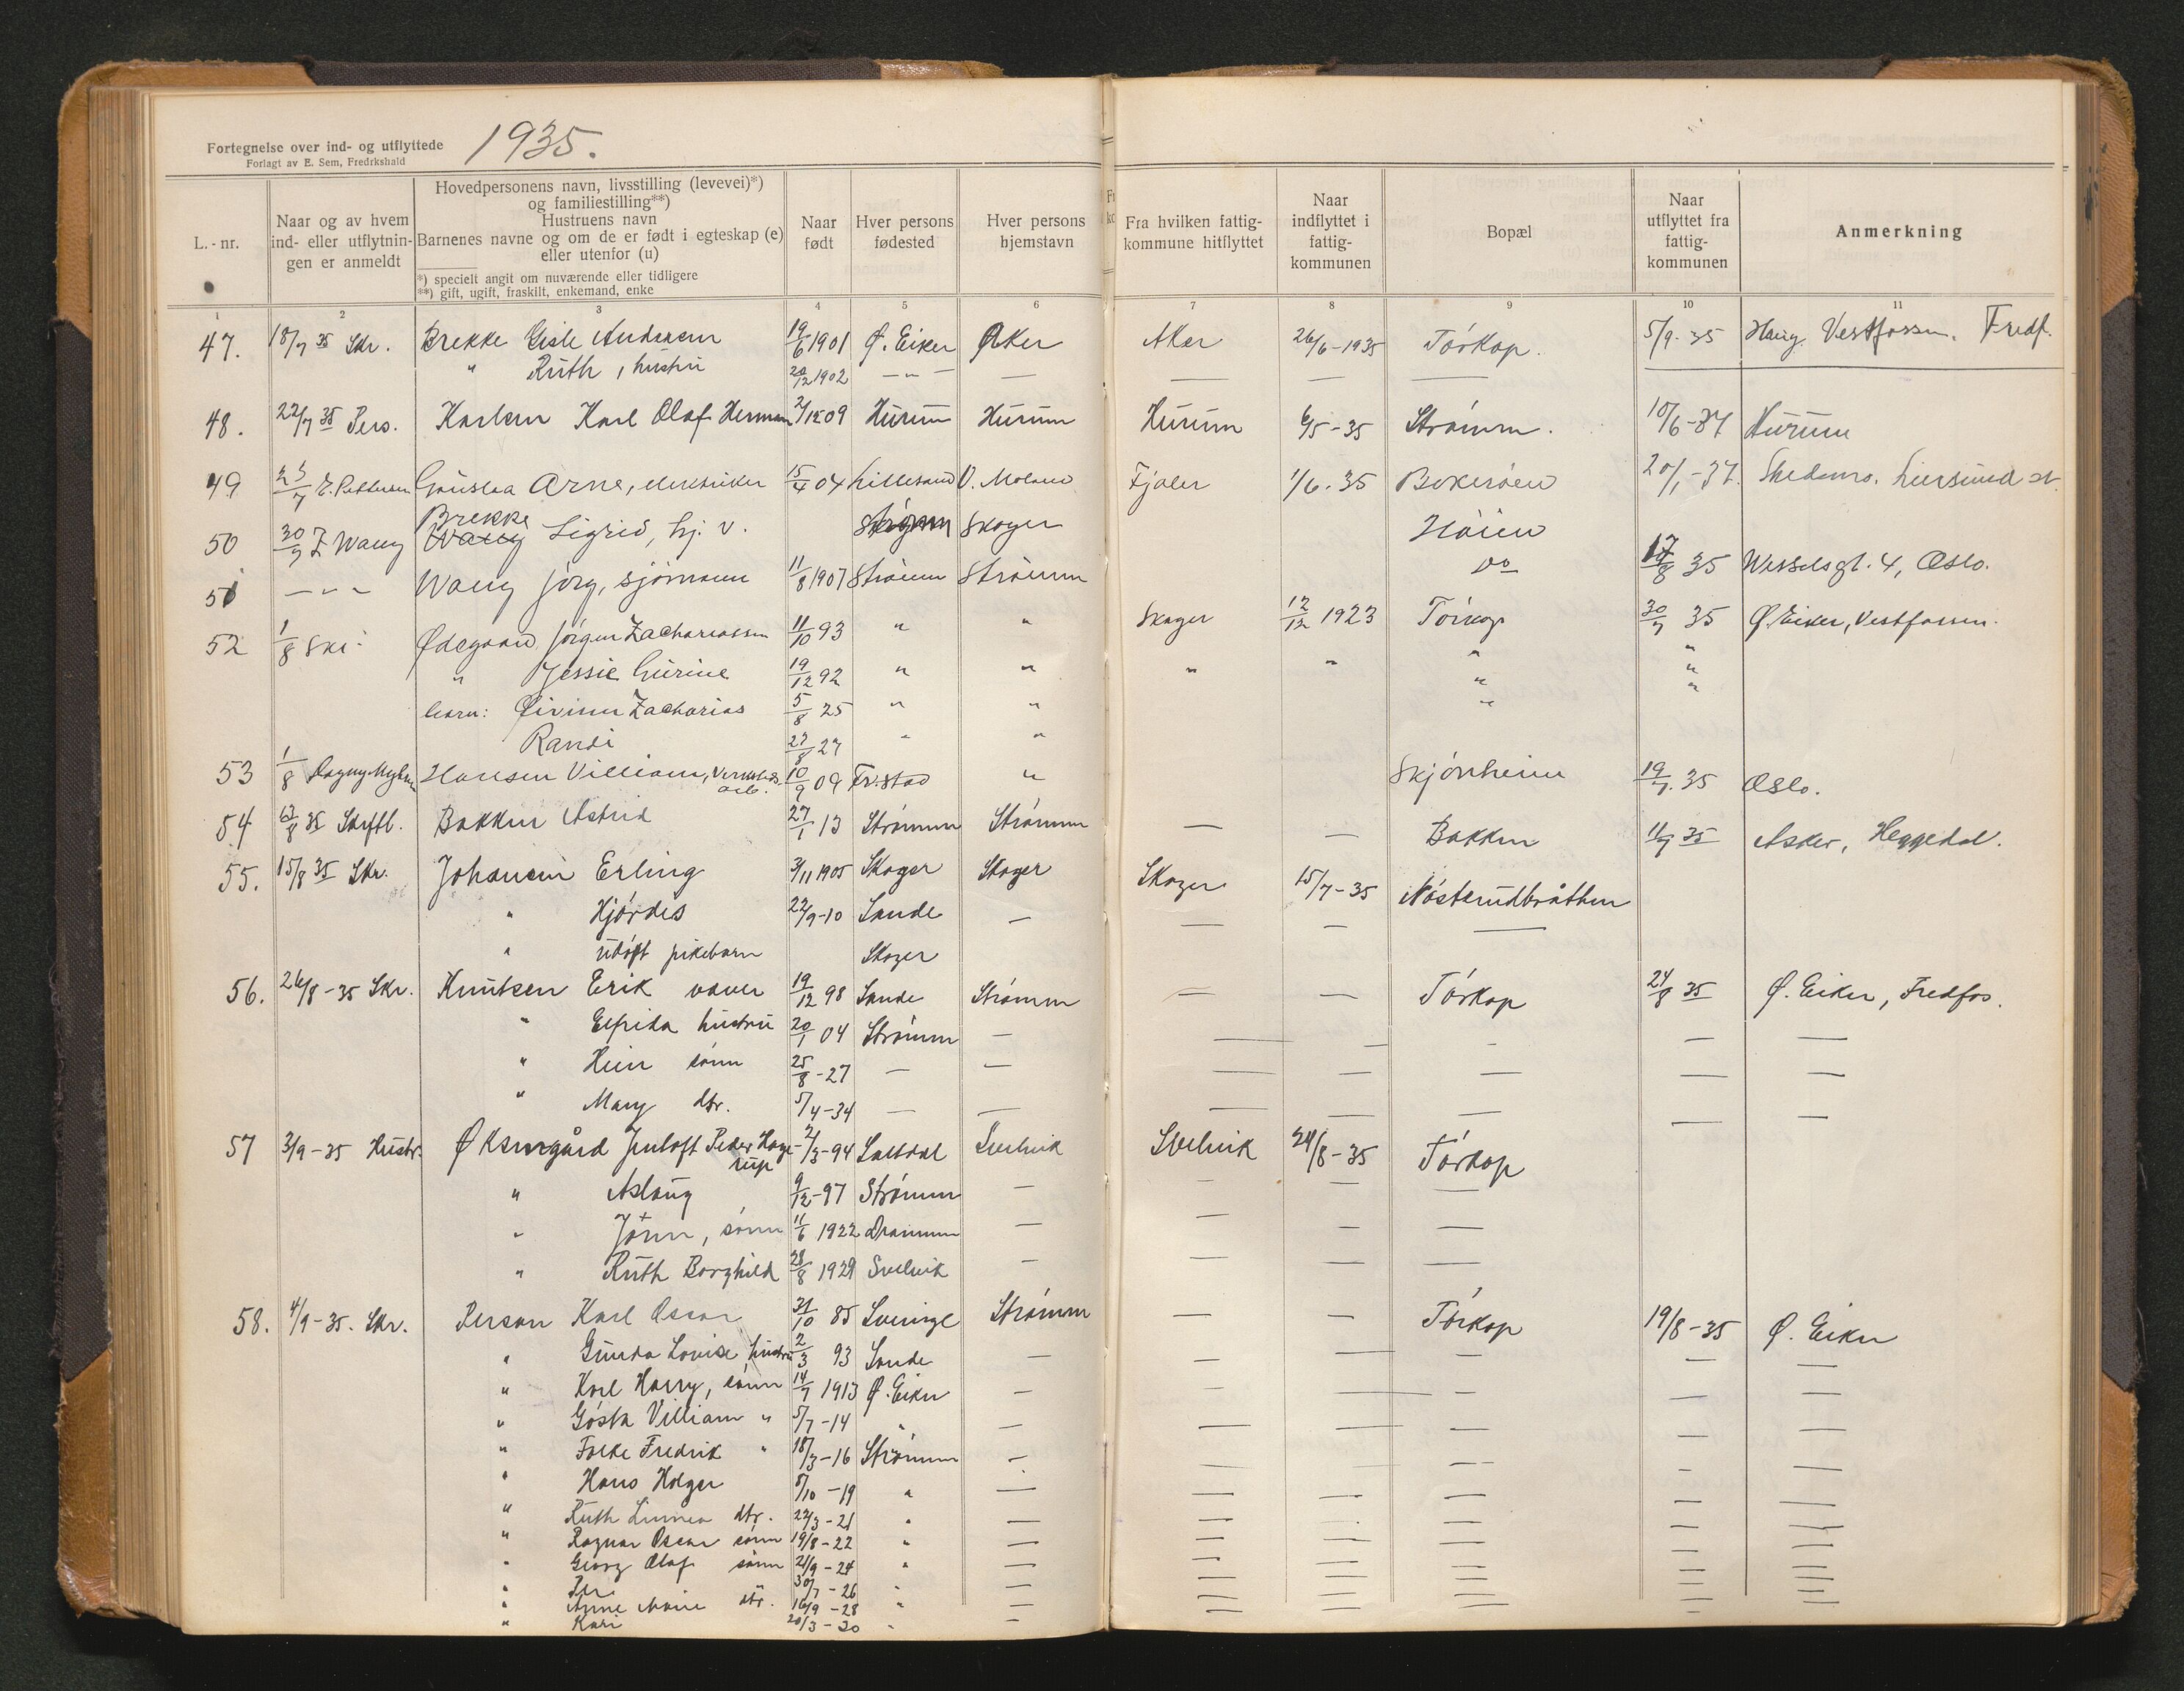 Fortegnelse over ind- og utflyttede 1935.
Forlagt av E. Sem, Fredrkshald
L.-nr.
Naar og av hvem ind- eller utflytnin-gen er anmeldt
Hovedpersonens navn, livsstilling (levevei)*) og familiestilling**) Hustruens navn Barnenes navne og om de er født i egteskap (e) eller utenfor (u)
*) specielt angit om nuværende eller tidligere
**) gift, ugift, fraskilt, enkemand, enke
Naar født
Hver persons fødested
Hver persons hjemstavn
Fra hvilken fattig-kommune hitflyttet
Naar indflyttet i fattig-kommunen
Bopæl
Naar utflyttet fra fattig-kommunen
Anmerkning
1 2 3 4 5 6 7 8 9 10 11
47. 18/7 35 Skr. Brekke Gisle Andersen 19/6 1901 Ø. Eiker Aker Aker 26/6-1935 Tórkop. 5/9-35 Haug Vestfossen. Fredf.
" Ruth, hustru 20/12 1902 — " — — — — —
48. 22/7 35 Pers. Karlsen Karl Olaf Herman 2/12 09 Hurum Hurum Hurum 6/5-35 Strømm. 10/6-37 Hurum
49 23/7 E. Pettersen Arne, elektriker 15/4 04 Lillesand V. Moland Fjaler 1/6. 35 Bokerøen 20/1-37.
50 30/7 Z Wang Brekke Wang Sigrid, hj. v. Strømm Skoger Høien
51 — " — Wang Jörg, sjömann 11/8 1907 Strømm Strømm do 17/8 35 Wesselsgt. 4, Oslo.
52 1/8 Skr. Ødegaard Jørgen Zachariassen 11/10 93 " " Skoger 12/12 1923 Törkop 30/7 35 Ø. Eiker, Vestfossen.
" Jessie Gurine 19/12 92 " " " " " "
barn: Øivinn Zacharias 5/8 25 " " " "
Randi 27/8 27 " " " "
53 1/8 Dagny Myhren Hansen William, Verksteds-arb. 10/9 09 Fr.stad " Skjönheim 19/7. 35 Oslo.
54 13/8 35 Skriftl. Bakken Astrid 27/1 13 Strømm Strømm — — Bakken 11/7 35 Asker, Heggedal.
55. 15/8 35 Skr. Johansen Erling 3/11 1905 Skoger Skoger Skoger 15/7-35 Nósterudbråthen
" Hjórdis 22/9-10 Sande — — — —
" udópt pikebarn Skoger
56. 26/8-35 Skr. Knutsen Erik vever 19/12 98 Sande Strømm — — Tórkop 24/8 35 Ø. Eiker, Fredfos.
" Elfrida hustru 20/1 04 Strømm — — — - — —
" Hein sónn 25/8-27 — — — — — — —
" Mary dtr. 5/4-34 — — — — — — —
57 3/9-35 Hustr. Øksnegård Jentoft Peder Hage-rup 2/3-94 Saltdal Svelvik Svelvik 24/8-35 Tórkop
" Aslaug 9/12-97 Strømm — - — —
" Jónn, sónn 11/6 1922 Drammen — — — —
" Ruth Borghild 28/8 1929 Svelvik — — — —
58. 4/9-35. Skr. Person Karl Oscar 31/10 85 Sverige Strømm — — Tórkop 19/8-35 Ø. Eiker
" Gunda Lovise hustru 2/3 93 Sande — — — — — —
" Karl Harry, sónn 14/7 1913 Ø. Eiker — — — — — —
" Gósta Villiam " 5/7-14 " — — — — — —
" Folke Fredrik " 18/3-16 Strømm — — — — — —
" Hans Holger 5/10-19 " — — — — — —
" Ruth Linnea dtr. 22/3-21 " — — — — — —
" Ragnar Oscar sónn 19/8-22 " — — — — — —
" Georg Olaf sónn 21/9-24 " — — — — — —
" Per 30/7-26 " — — — — — —
" Anne Marie dtr. 16/9-28 " — — — — — —
" Kari 20/3-30 " — — — — — —